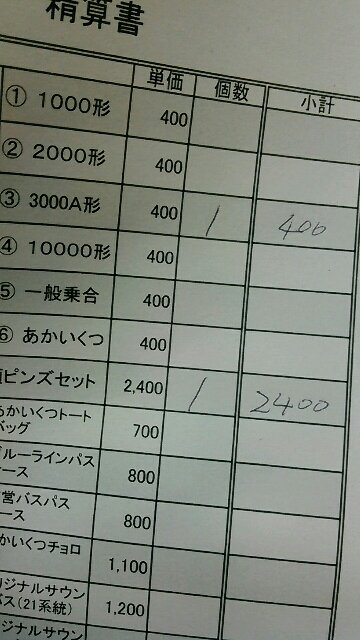 精算書
単価 個数 小計
① 1000形 400
② 2000形 400
③ 3000A形 400 1 400
④ 10000形 400
⑤ 一般乗合 400
⑥ あかいくつ 400
ピンズセット 2,400 1 2400
あかいくつトート
バッグ 700
ブルーラインパス
ース 800
営バスパス
ース 800
かいくつチョロ
1,100
リジナルサウン
バス(21系統) 1,200
リジナルサウン